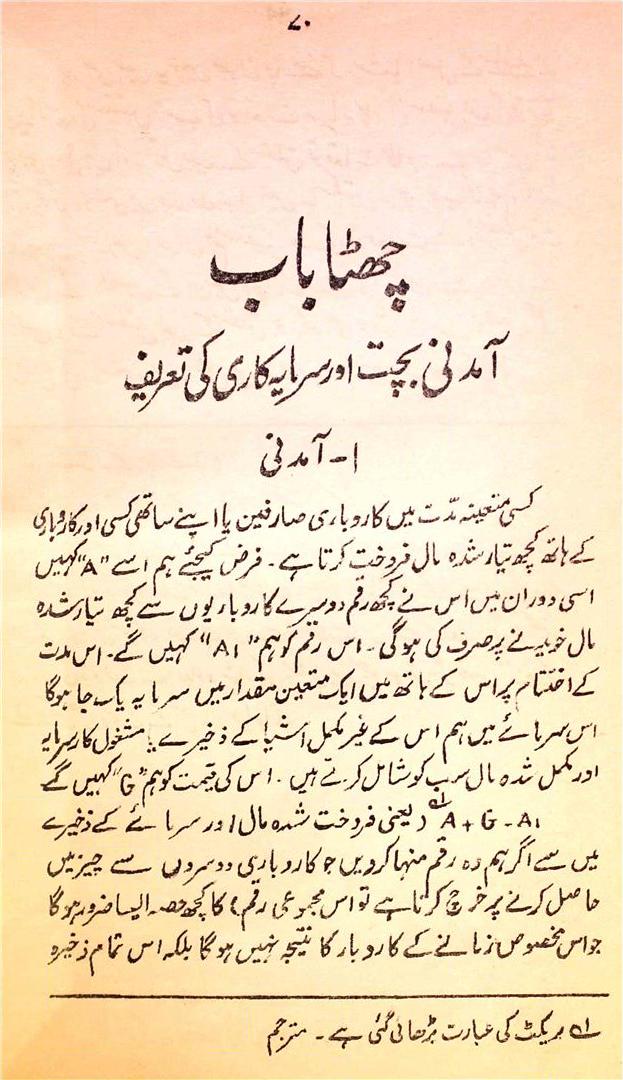 ۷۰
چھٹا باب
آمدنی بچت اور سرمایہ کاری کی تعریف
۱- آمدنی
کسی متعینہ مدّت میں کاروباری صارفین یا اپنے ساتھی کسی اور کاروباری
کے ہاتھ کچھ تیار شدہ مال فروخت کرتا ہے۔ فرض کیجئے ہم اسے "A" کہیں
اسی دوران میں اس نے کچھ رقم دوسرے کاروباریوں سے کچھ تیار شدہ
مال خریدنے پر صرف کی ہوگی۔ اس رقم کو ہم "A1" کہیں گے۔ اس مدت
کے اختتام پر اس کے ہاتھ میں ایک متعین مقدار میں سرمایہ یک جا ہوگا
اس سرمائے میں ہم اس کے غیر مکمل اشیا کے ذخیرے یا مشغول کار سرمایہ
اور مکمل شدہ مال سب کو شامل کرتے ہیں۔ اس کی قیمت کو ہم "G" کہیں گے
A + G - A1 لہ (یعنی فروخت شدہ مال اور سرمائے کے ذخیرے
میں سے اگر ہم وہ رقم منہا کردیں جو کاروباری دوسروں سے چیزیں
حاصل کرنے پر خرچ کرتا ہے تو اس مجموعی رقم) کا کچھ حصہ ایسا ضرور ہوگا
جو اس مخصوص زمانے کے کاروبار کا نتیجہ نہیں ہوگا بلکہ اس تمام ذخیرہ
لہ بریکٹ کی عبارت بڑھائی گئی ہے۔ مترجم